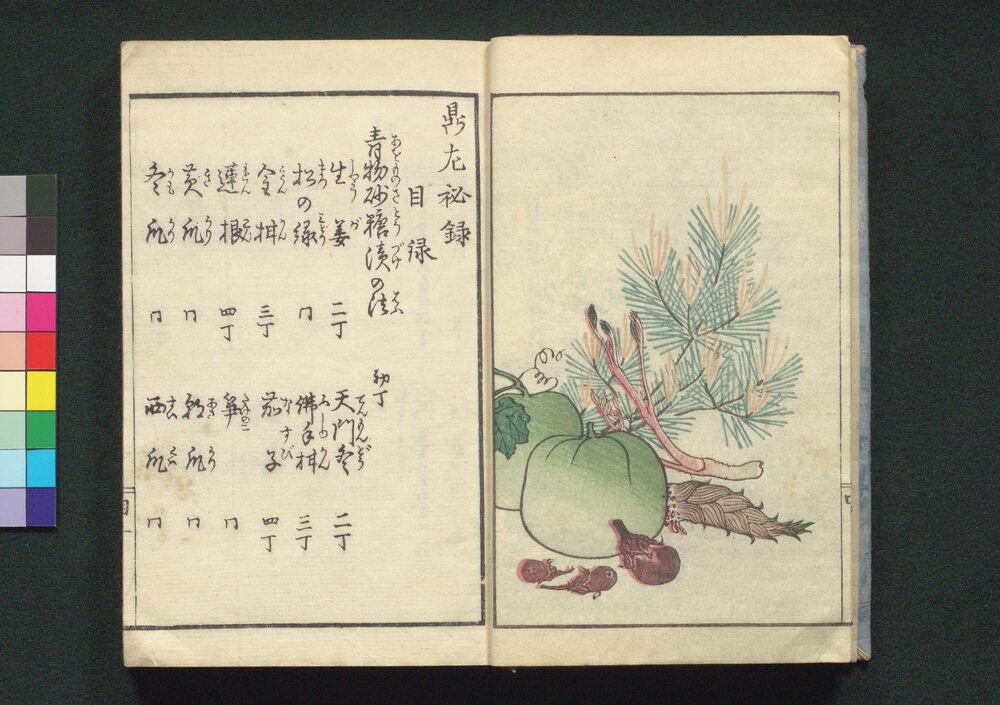 鼎左祕録
目録
青物砂糖漬の法 初丁
生姜 二丁 天門冬 二丁
松の緑 同 佛手柑 三丁
金柑 三丁 茄子 四丁
蓮根 四丁 笋 同
黄瓜 同 瓜 同
冬瓜 同 西瓜 同